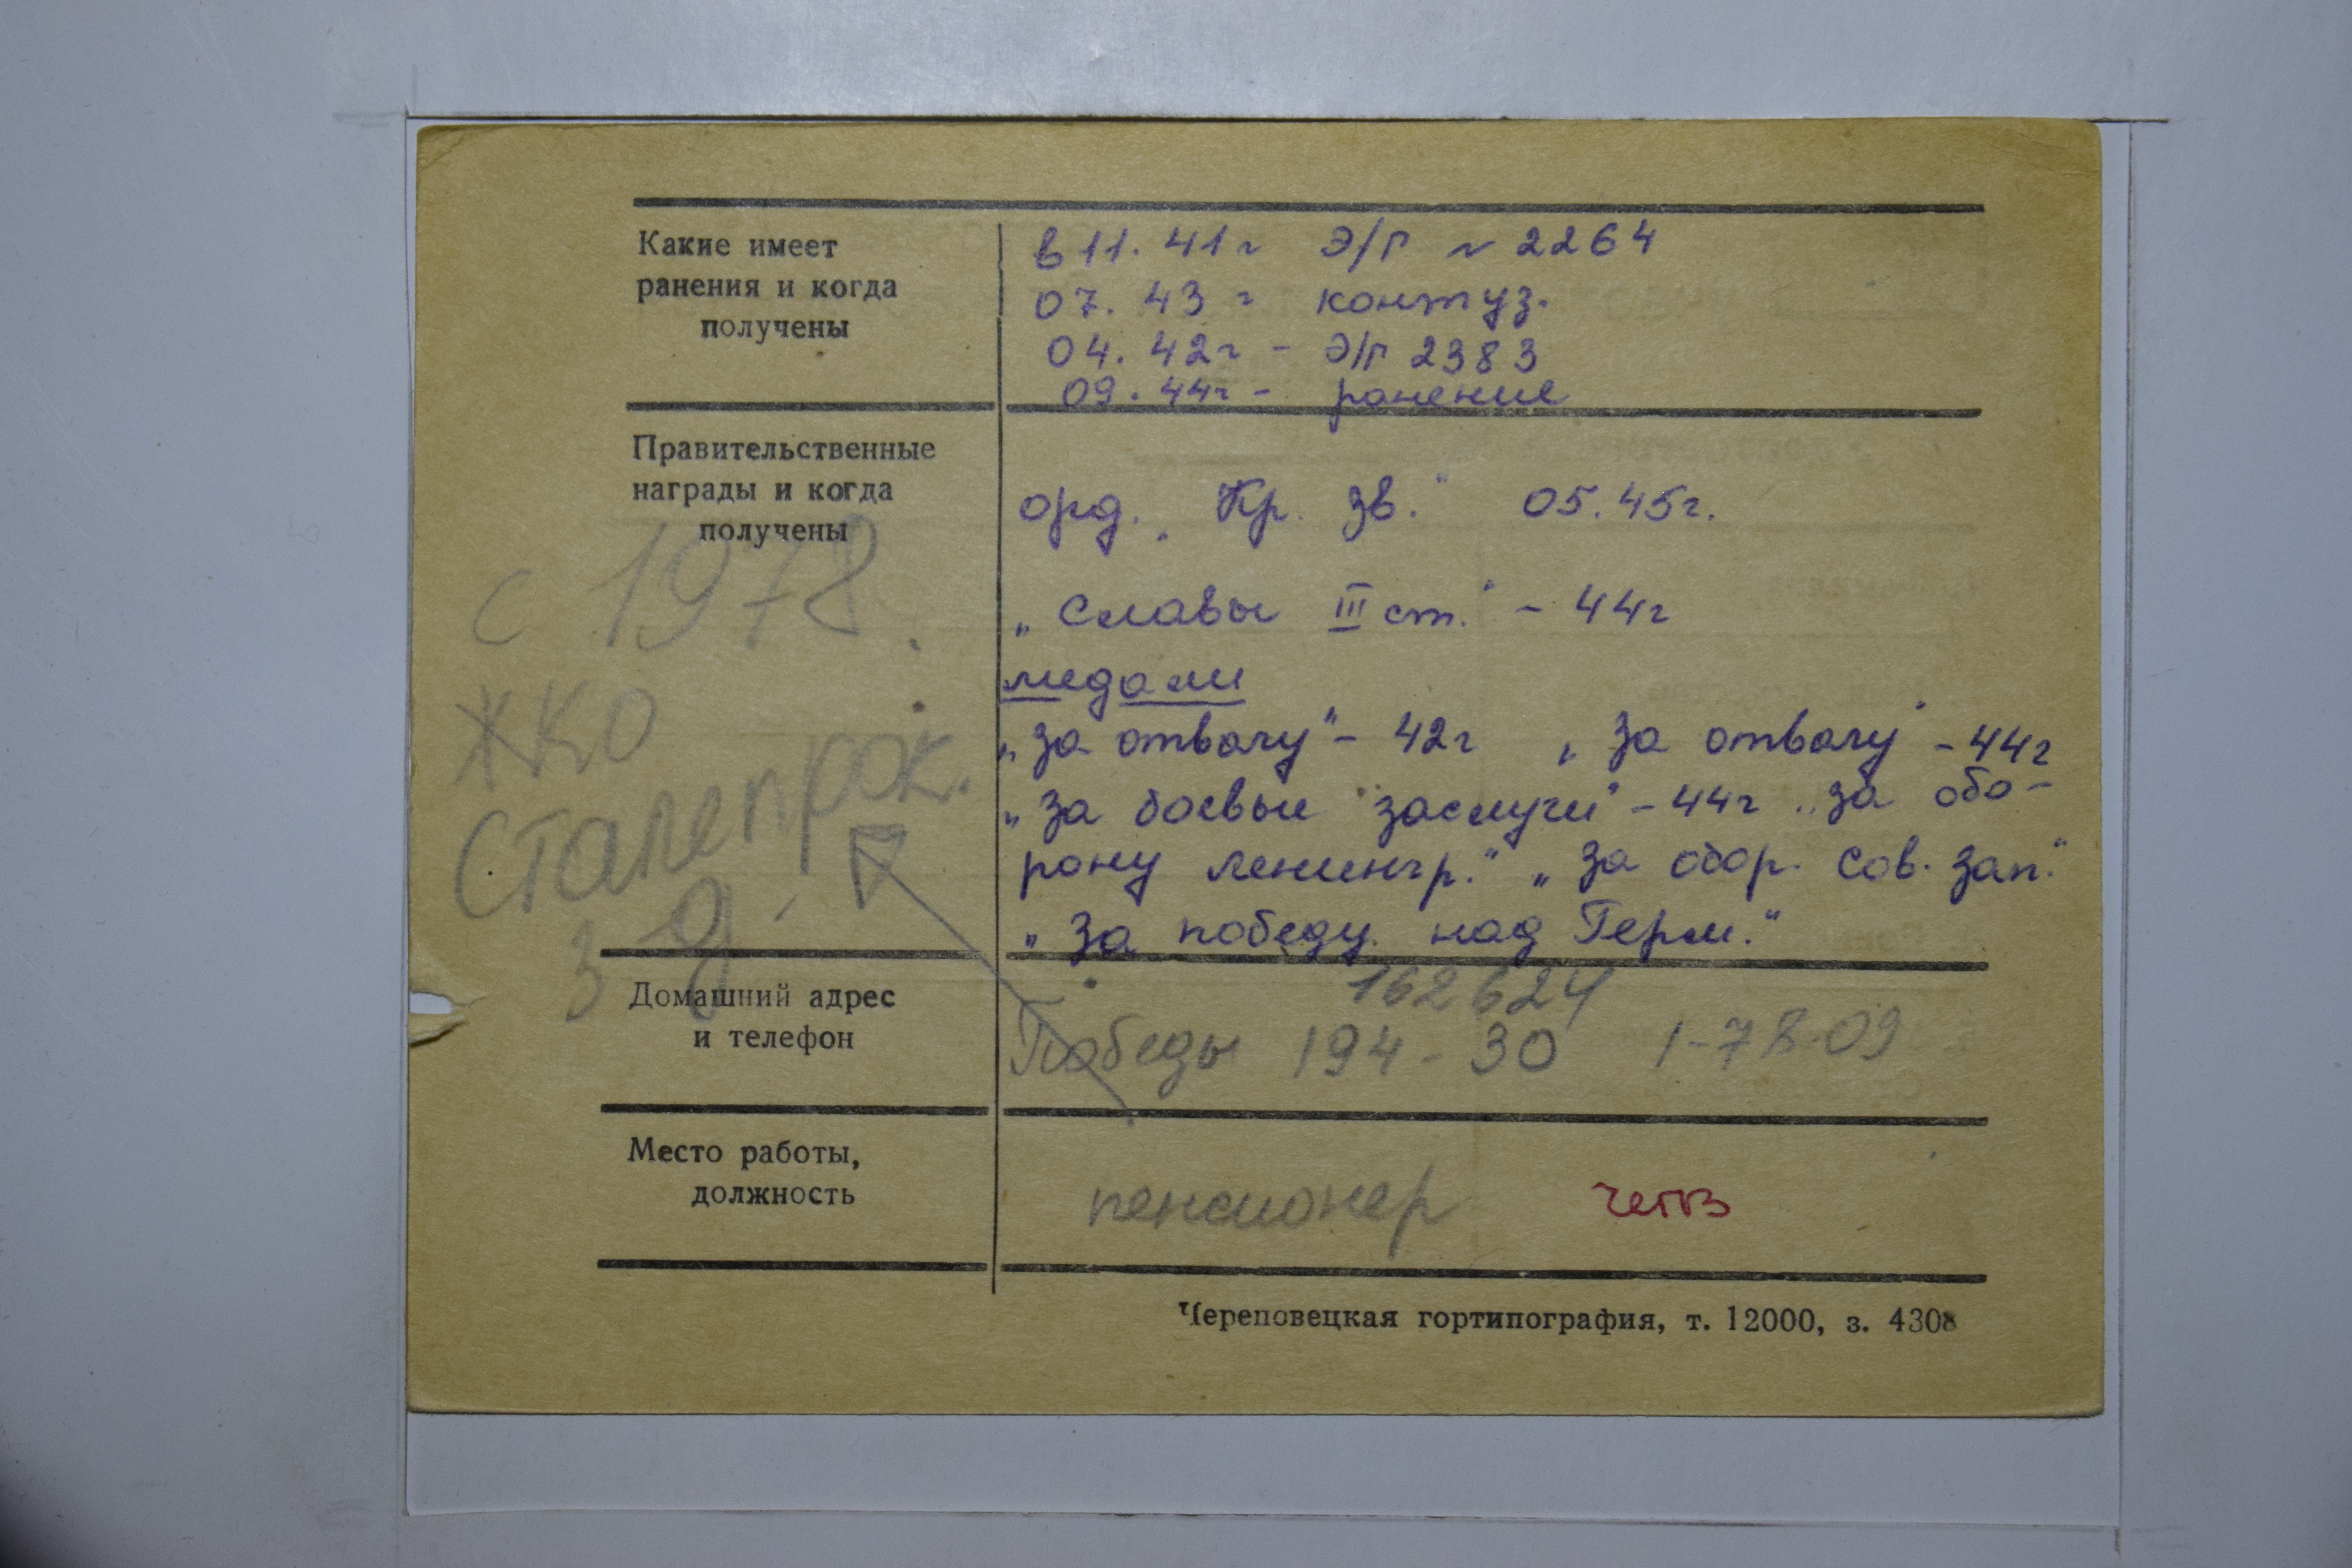 Какие имеет
ранения и когда
получены
в 11. 41г Э/Г № 2264
07. 43 г контуз.
04. 42г - Э/Г 2383
09. 44г - ранение
Правительственные
награды и когда
получены
орд. „Кр. Зв." 05.45г.
„Славы III ст." - 44г
медали
„За отвагу" - 42г „За отвагу" - 44г
„За боевые заслуги" - 44г „За обо-
рону Ленингр." „За обор. Сов. Зап."
„За победу над Герм."
с 1978.
ЖКО
Сталепрок.
З-д
Домашний адрес
и телефон
162624
Победы 194 - 30 1-78-09
Место работы,
должность
пенсионер
Череповецкая гортипография, т. 12000, з. 4308